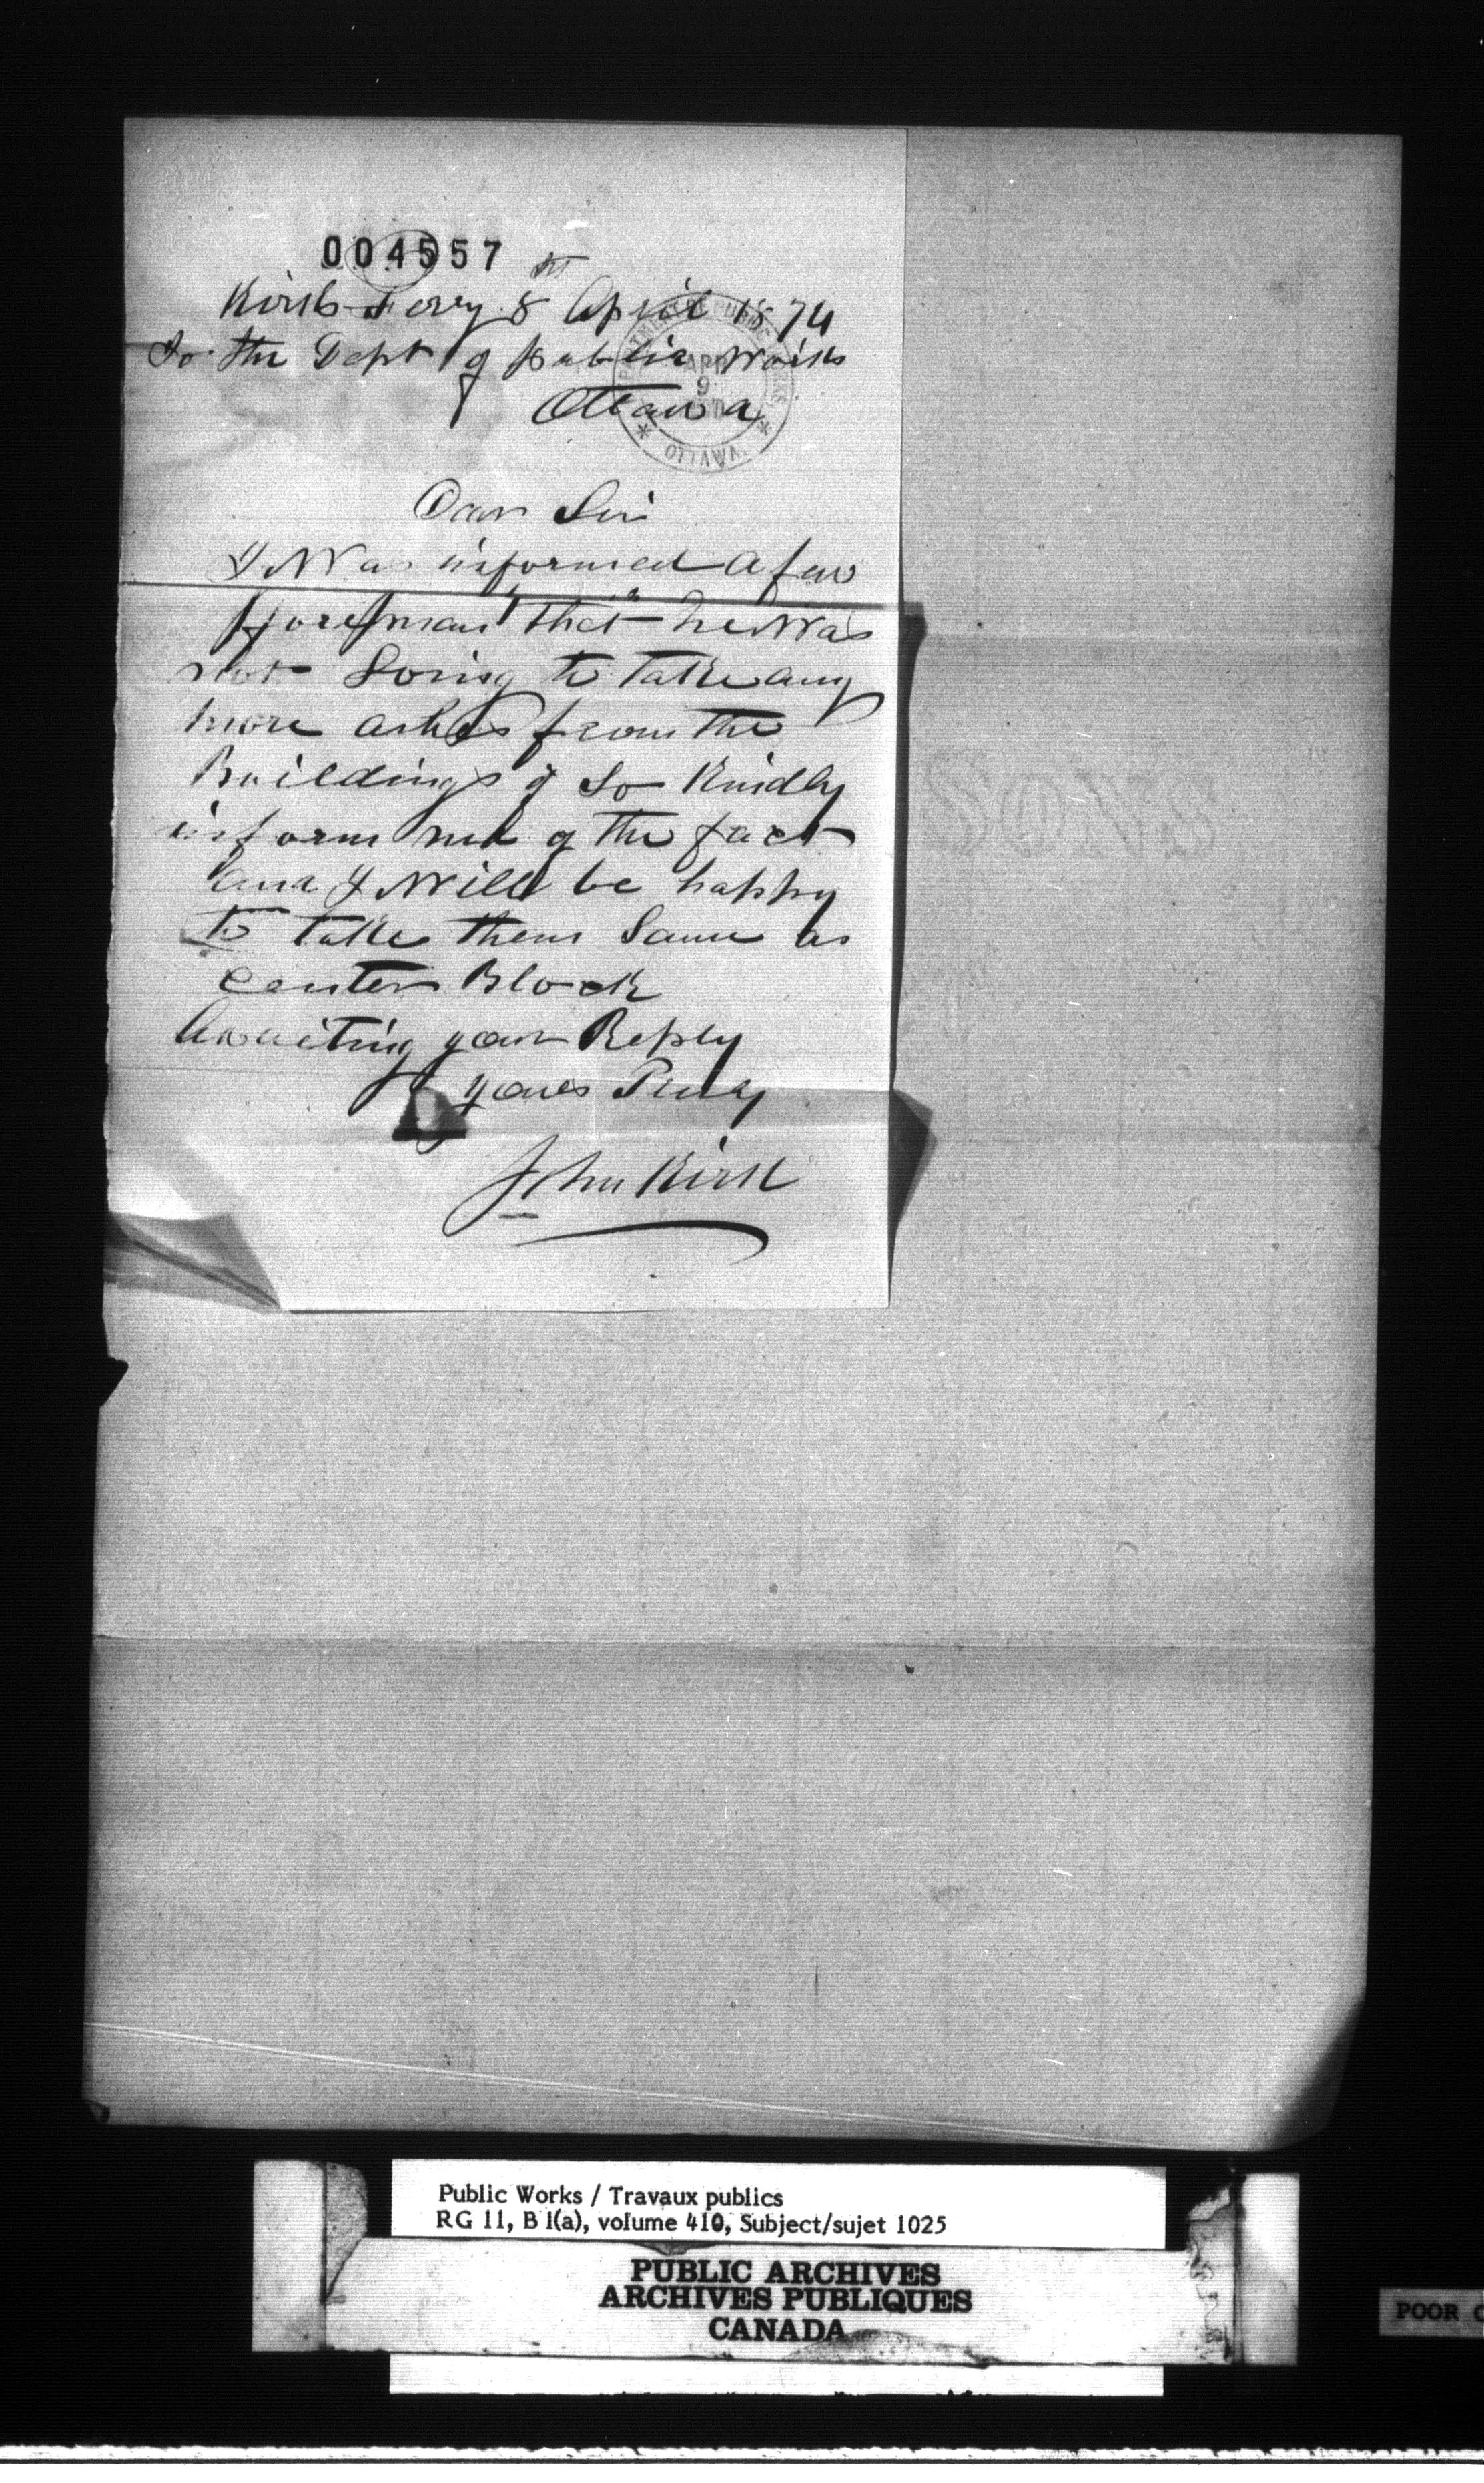 004557
Kirks Ferry 8th April 1874
To the Dept of public Works
Ottawa
APR
9
OTTAWA
Dear Sir
I Was informed a few
fforeman that he Was
not Going to take any
more ashes from the
Buildings if So Kindly
inform me of the fact
and I Will be happy
to take them Same as
Center Block
Awaiting your Reply
yours Truly
John Kirk
Public Works / Travaux publics
RG 11, B 1(a), volume 410, Subject/sujet 1025
PUBLIC ARCHIVES
ARCHIVES PUBLIQUES
CANADA
POOR